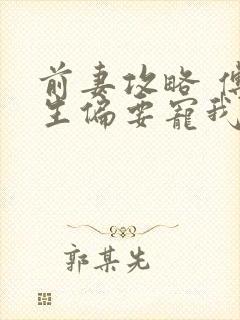 前妻攻略
生偏要宠我
郭某先